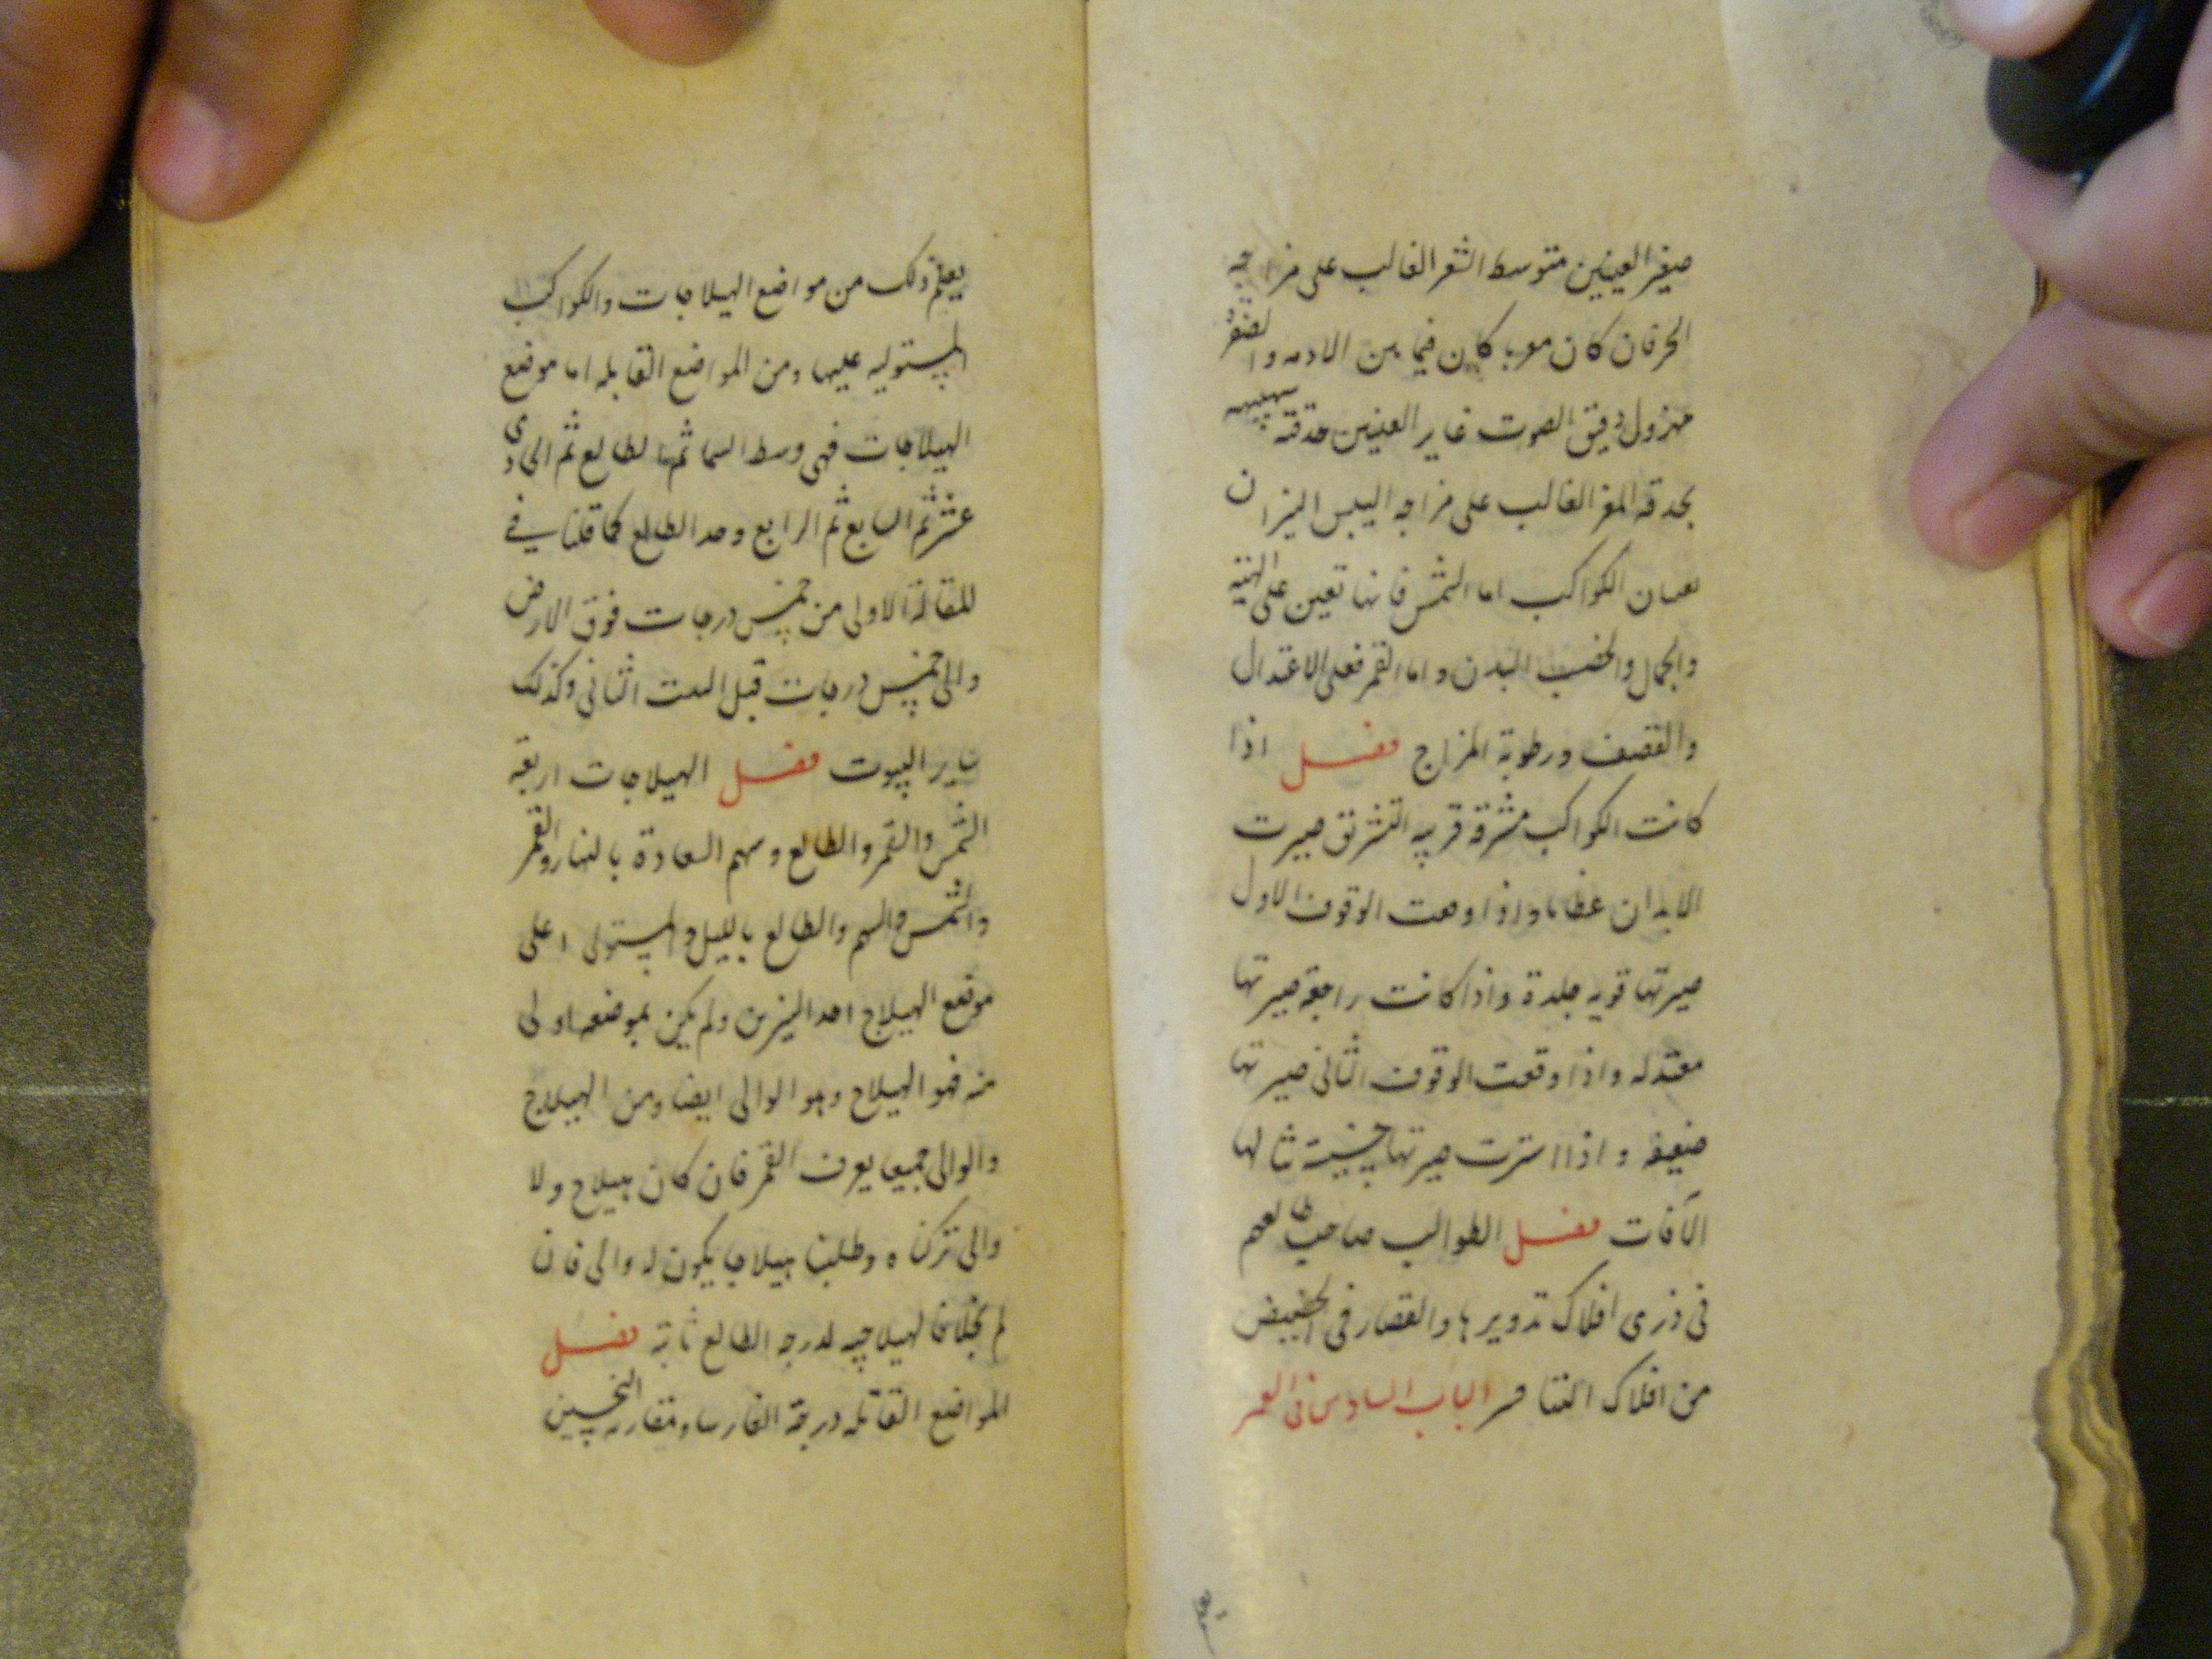 صغير العينين متوسط الشعر الغالب على مزاجه
الحرفان كان مغربا كان فيما بين الادمه والصفرة
مهزول دقيق الصوت غاير العينين حدقته شبيهه
بحدقه المعز الغالب على مزاجه اليبس النيران
يعينان الكواكب اما الشمس فانها تعين على الهيئة
والجمال والخصب البدن واما القمر فعلى الاعتدال
والقصف ورطوبة المزاج فصل اذا
كانت الكواكب مشرقة قريبه التشريق صيرت
الابدان عظاما واذا وقعت الوقوف الاول
صيرتها قويه جلدة واذا كانت راجعة صيرتها
معتدله واذا وقعت الوقوف الثانى صيرتها
ضعيفه واذا استترت صيرتها خسيسة تنالها
الآفات فصل الطوالب صاحب طالعهم
فى ذرى افلاك تدويرها والقصار فى الحضيض
من افلاك الباب السادس فى العمر
يعلم ذلك من مواضع الهيلاجات والكواكب
المستوليه عليها ومن المواضع القابله اما موضع
الهيلاجات فهى وسط السما ثم الطالع ثم الحادى
عشر ثم السابع ثم الرابع وحد الطالع كما قلنا فى
المقالة الاولى من خمس درجات فوق الارض
والى خمس درجات قبل البيت الثانى وكذلك
ساير البيوت فصل الهيلاجات اربعة
الشمس والقمر والطالع وسهم السعادة بالنهار والقمر
والشمس والسهم والطالع بالليل والمستولى اعلى
موضع الهيلاج احد النيرين ولم يكن بموضعه اولى
منه فهو الهيلاج وهو الوالى ايضا ومن الهيلاج
والوالى جميعا يعرف القمر فان كان هيلاج ولا
والى تركناه وطلبنا هيلاجا يكون له والى فان
لم الهيلاجيه لدرجه الطالع ثابتة فصل
المواضع القاتله درجة الغارب ومقارنه النحسين